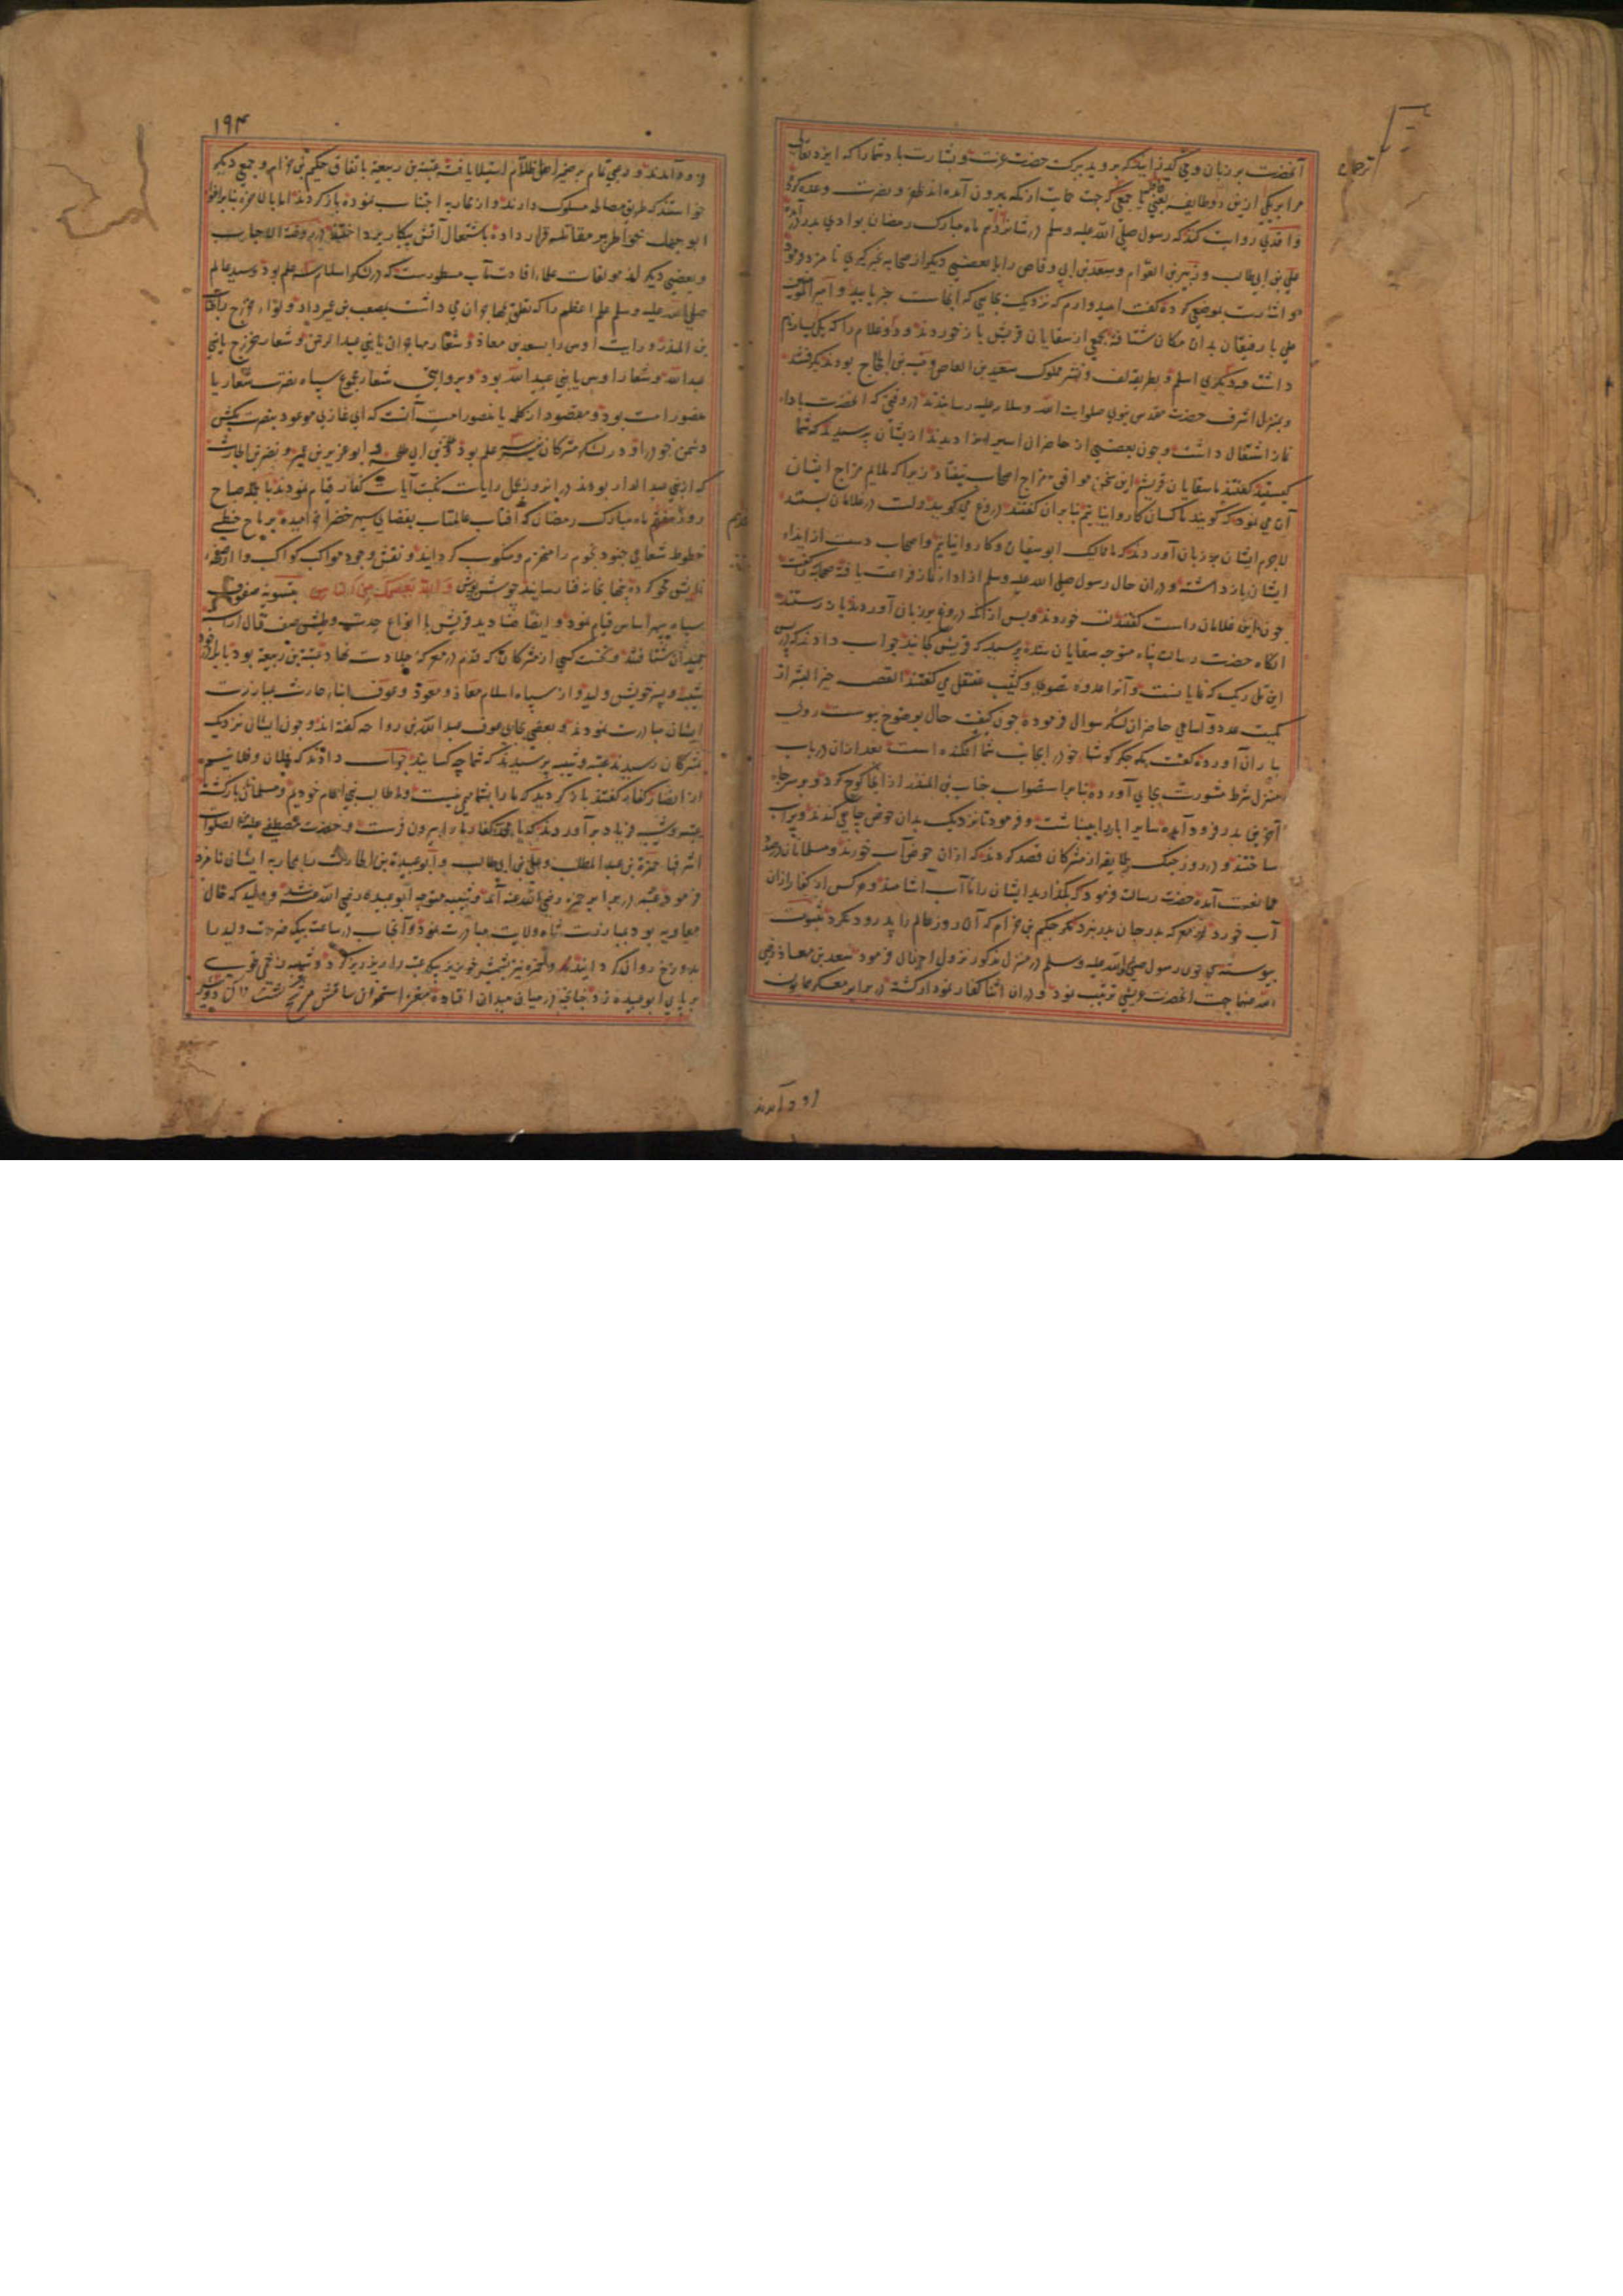 آنحضرت بر زبان وحی گذرانید که بروید ببرکت حضرت عزت و بشارت باد شما را که ایزد تعالی
مرا بیکی ازین دو طایفه یعنی قافله یا جمعی که جهت حمایت از مکه بیرون آمده اند ظفر و نصرت وعده کرد
واقدی روایت کند که رسول صلی الله علیه وسلم در شانزدهم ماه مبارک رمضان بوادی بدر
علی بن ابی طالب و زبیر بن العوام و سعد بن ابی وقاص را با بعضی دیگر از صحابه بخبرگیری نامزد فرمود
و اشارت بموضعی کرده گفت امیدوارم که نزدیک بجایی که آنجاست خبر یابید و امیر المومنین
علی با رفیقان بدان مکان شتافته بجمعی از سقایان قریش باز خوردند و دو غلام را که یکی یسار نام
داشت و دیگری اسلم و بطریق لف و نشر مملوک سعید بن العاص و منبه بن الحجاج بودند بگرفتند
و بمنزل اشرف حضرت مقدس نبوی صلوات الله وسلامه علیه رسانیدند در وقتی که آنحضرت باداء
نماز اشتغال داشت و چون بعضی از حاضران اسیران را دیدند از ایشان پرسیدند که شما
کیستید گفتند ما سقایان قریشیم این سخن موافق مزاج اصحاب نیفتاد زیرا که ملایم مزاج ایشان
آن می نمود که گویند ما کسان کاروانیانیم بنابران گفتند دروغ می گویید و لت در غلامان بستند
لاجرم ایشان بر زبان آوردند که ممالیک ابوسفیان و کاروانیانیم و اصحاب دست از ایذاء
ایشان باز داشته و دران حال رسول صلی الله علیه وسلم از اداء نماز فراغت یافته صحابه را گفت
چون این غلامان راست گفتند لت خوردند و پس از آنکه دروغ بر زبان آوردند باز رستند
انگاه حضرت رسالت پناه متوجه سقایان شده پرسید که قریش کجایند جواب دادند که در پس
این تل ریک که نمایانست و آنرا عدوه قصوی و کثیب عنقل می گفتند القصه خیر البشر از
کمیت عدد و اسامی حاضران لشکر سوال فرموده چون کیفیت حال بوضوح پیوست روی
بیاران آورده گفت مکه جگر گوشهاء خود را بجانب شما افکنده است بعد ازان در باب
منزل شرط مشورت بجای آورده بنابر استصواب حباب بن المنذر از آنجا کوچ کرد و بر سر چاه
آخرین بدر فرود آمده سایر آبار را بینباشت و فرمود تا نزدیک بدان حوض چاهی کندند و پرآب
ساختند و در روز جنگ طایفه از مشرکان قصد کردند که ازان حوض آب خورند و مسلمانان در صدد
ممانعت آمده حضرت رسالت فرمود که بگذارید ایشان را تا آب آشامند و هر کس از کفار ازان
آب خورد در معرکه بدر جان نبرد مگر حکیم بن حزام که آن روز عالم را پدرود نکرد بثبوت
پیوسته که چون رسول صلی الله علیه وسلم در منزل مذکور نزول اجلال فرمود سعد بن معاذ رضی
الله عنه بجهت آنحضرت عریشی ترتیب نمود و دران اثنا کفار نمودار گشته در برابر معسکر همایون
فرود آمدند
۱۹۴
فرود آمدند و رعبی تمام بر ضمیر اهل ظلام استیلا یافته عتبة بن ربیعه باتفاق حکیم بن حزام و جمعی دیگر
خواستند که طریق مصالحه مسلوک دارند و از محاربه اجتناب نموده باز گردند
ابوجهل خواطر بر مقاتله قرار داده باشتعال آتش پیکار پرداختند در روضة الاحباب
و بعضی دیگر از مولفات علماء افادت مآب مسطورست که در لشکر اسلام سه علم بود و سید عالم
صلی الله علیه وسلم علم اعظم را که تعلق بمهاجران می داشت بمصعب بن عمیر داد و لواء خزرج بحباب
بن المنذر و رایت اوس را بسعد بن معاذ و شعار مهاجران یا بنی عبد الرحمن و شعار خزرج یا بنی
عبد الله و شعار اوس یا بنی عبید الله بود و بروایتی شعار مجموع سپاه نصرت شعار یا
منصور امت بود و مقصود از کلمه یا منصور امت آنست که ای غازی موعود بنصرت بکش
دشمن خود را و در لشکر مشرکان نیز سه علم بود و طلحة بن ابی طلحه و ابو عزیز بن عمیر و نضر بن الحارث
که از بنی عبد الدار بودند در انروز بحمل رایات نکبت آیات کفار قیام نمودند بالجمله صباح
روز هفدهم ماه مبارک رمضان که آفتاب عالمتاب بفضای سپهر خضرا خرامیده برماح خطی
خطوط شعاعی جنود نجوم را منهزم و منکوب گردانید و نقش وجود مواکب کواکب را از صفحه
والله یعصمک من الناس بتسویه صفوف
سپاه سپهر اساس قیام نمود و ایضا صنادید قریش با انواع حدت و طیش صف قتال آراسته
بمیدان شتافتند و نخست کسی از مشرکان که قدم در معرکه جلادت نهاد عتبة بن ربیعه بود با برادر خود
شیبه و پسر خویش ولید و از سپاه اسلام معاذ و معوذ و عوف ابناء حارث بمبارزت
ایشان مبادرت نمودند و بعضی بجای عوف عبد الله بن رواحه گفته اند و چون ایشان نزدیک
بمشرکان رسیدند عتبه و شیبه پرسیدند که شما چه کسانید جواب دادند که فلان و فلانیم
از انصار کفار گفتند باز گردید که ما را بشما مهمی نیست و ما طالب بنی اعمام خودیم و مسلمانان باز گشته
عتبه و شیبه فریاد برآوردند که یا محمد اکفاء ما را بیرون فرست و حضرت مصطفی علیه من الصلوات
اشرفها حمزة بن عبد المطلب و علی بن ابی طالب و ابو عبیدة بن الحارث را بمحاربه ایشان نامزد
فرمود عتبه در برابر حمزه رضی الله عنه آمد و شیبه متوجه ابو عبیده رضی الله عنه شد و ولید که خال
معاویه بود بمبارزت شاه ولایت مبادرت نمود و آنجناب در ساعت بیک ضربت ولید را
بدوزخ روان گردانید و حمزه نیز بشمشیر خونریز پیکر عتبه را ریز ریز کرد و شیبه زخمی قوی
بر پای ابو عبیده زد چنانچه در میان میدان افتاده مغز استخوان ساقش